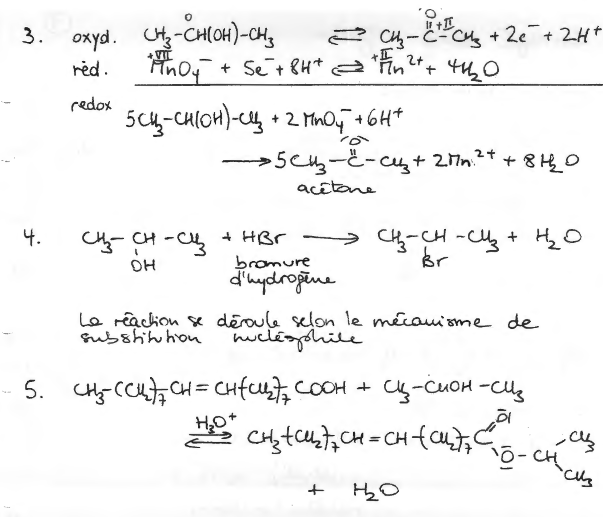 3. oxyd. CH₃-CH(OH)-CH₃ ⇌ CH₃-C-CH₃ + 2e⁻ + 2H⁺
réd. MnO₄⁻ + 5e⁻ + 8H⁺ ⇌ Mn²⁺ + 4H₂O
redox 5CH₃-CH(OH)-CH₃ + 2MnO₄⁻ + 6H⁺
→ 5CH₃-C-CH₃ + 2Mn²⁺ + 8H₂O
acétone
4. CH₃-CH-CH₃ + HBr → CH₃-CH-CH₃ + H₂O
OH bromure Br
d'hydrogène
La réaction se déroule selon le mécanisme de
substitution nucléophile
5. CH₃-(CH₂)₇-CH=CH(CH₂)₇COOH + CH₃-CHOH-CH₃
H₃O⁺
⇌ CH₃-(CH₂)₇CH=CH-(CH₂)₇C O
O-CH CH₃
CH₃
+ H₂O